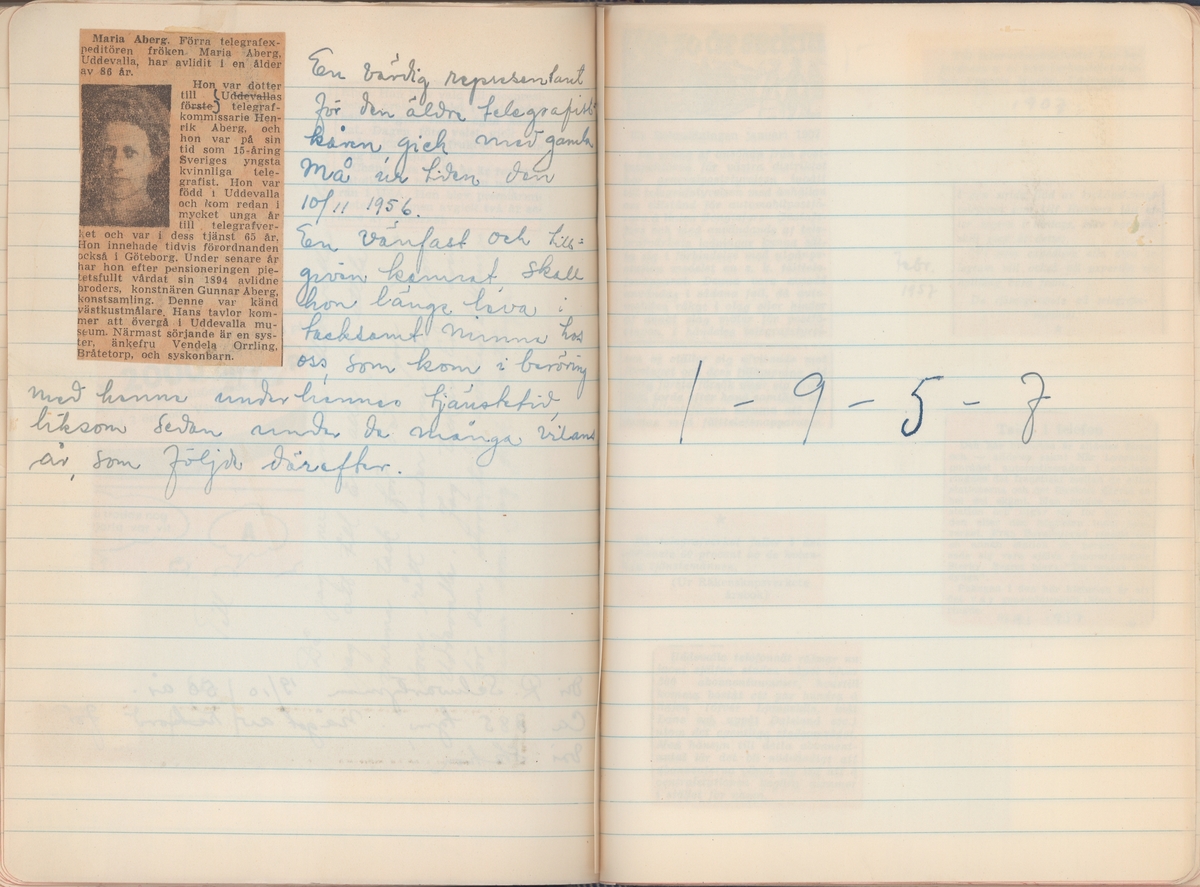 Maria Åberg. Förra telegrafex-
peditören fröken Maria Åberg,
Uddevalla, har avlidit i en ålder
av 86 år.
Hon var dotter
till (Uddevallas
förste) telegraf-
kommissarie Hen-
rik Åberg, och
hon var på sin
tid som 15-åring
Sveriges yngsta
kvinnliga tele-
grafist. Hon var
född i Uddevalla
och kom redan i
mycket unga år
till telegrafver-
ket och var i dess tjänst 65 år.
Hon innehade tidvis förordnanden
också i Göteborg. Under senare år
har hon efter pensioneringen pie-
tetsfullt vårdat sin 1894 avlidne
broders, konstnären Gunnar Åberg,
konstsamling. Denne var känd
västkustmålare. Hans tavlor kom-
mer att övergå i Uddevalla mu-
seum. Närmast sörjande är en sys-
ter, änkefru Vendela Orrling,
Bråtetorp, och syskonbarn.
En värdig representant
för den äldre telegrafist
kåren gick med gamla
Må ur tiden den
10/11 1956.
En vänfast och till=
given kamrat skall
hon länge leva i
tacksamt minne hos
oss, som kom i beröring
med henne under hennes tjänstetid,
liksom sedan under de många vilans
år, som följde därefter.
1 - 9 - 5 - 7